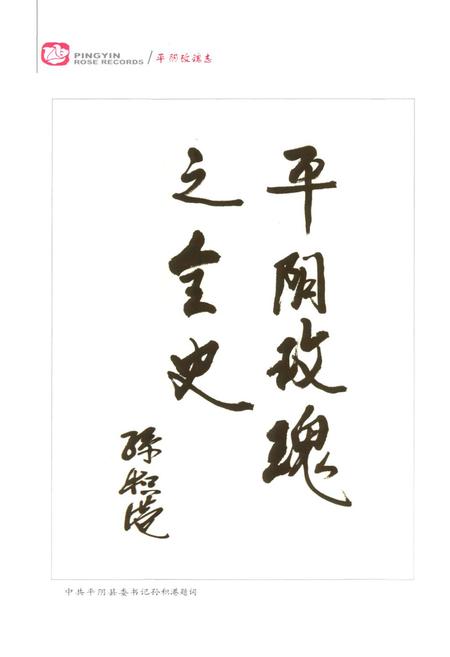 PINGYIN
ROSE RECORDS / 平阴玫瑰志
平阴玫瑰
之全史
孙积港
中共平阴县委书记孙积港题词